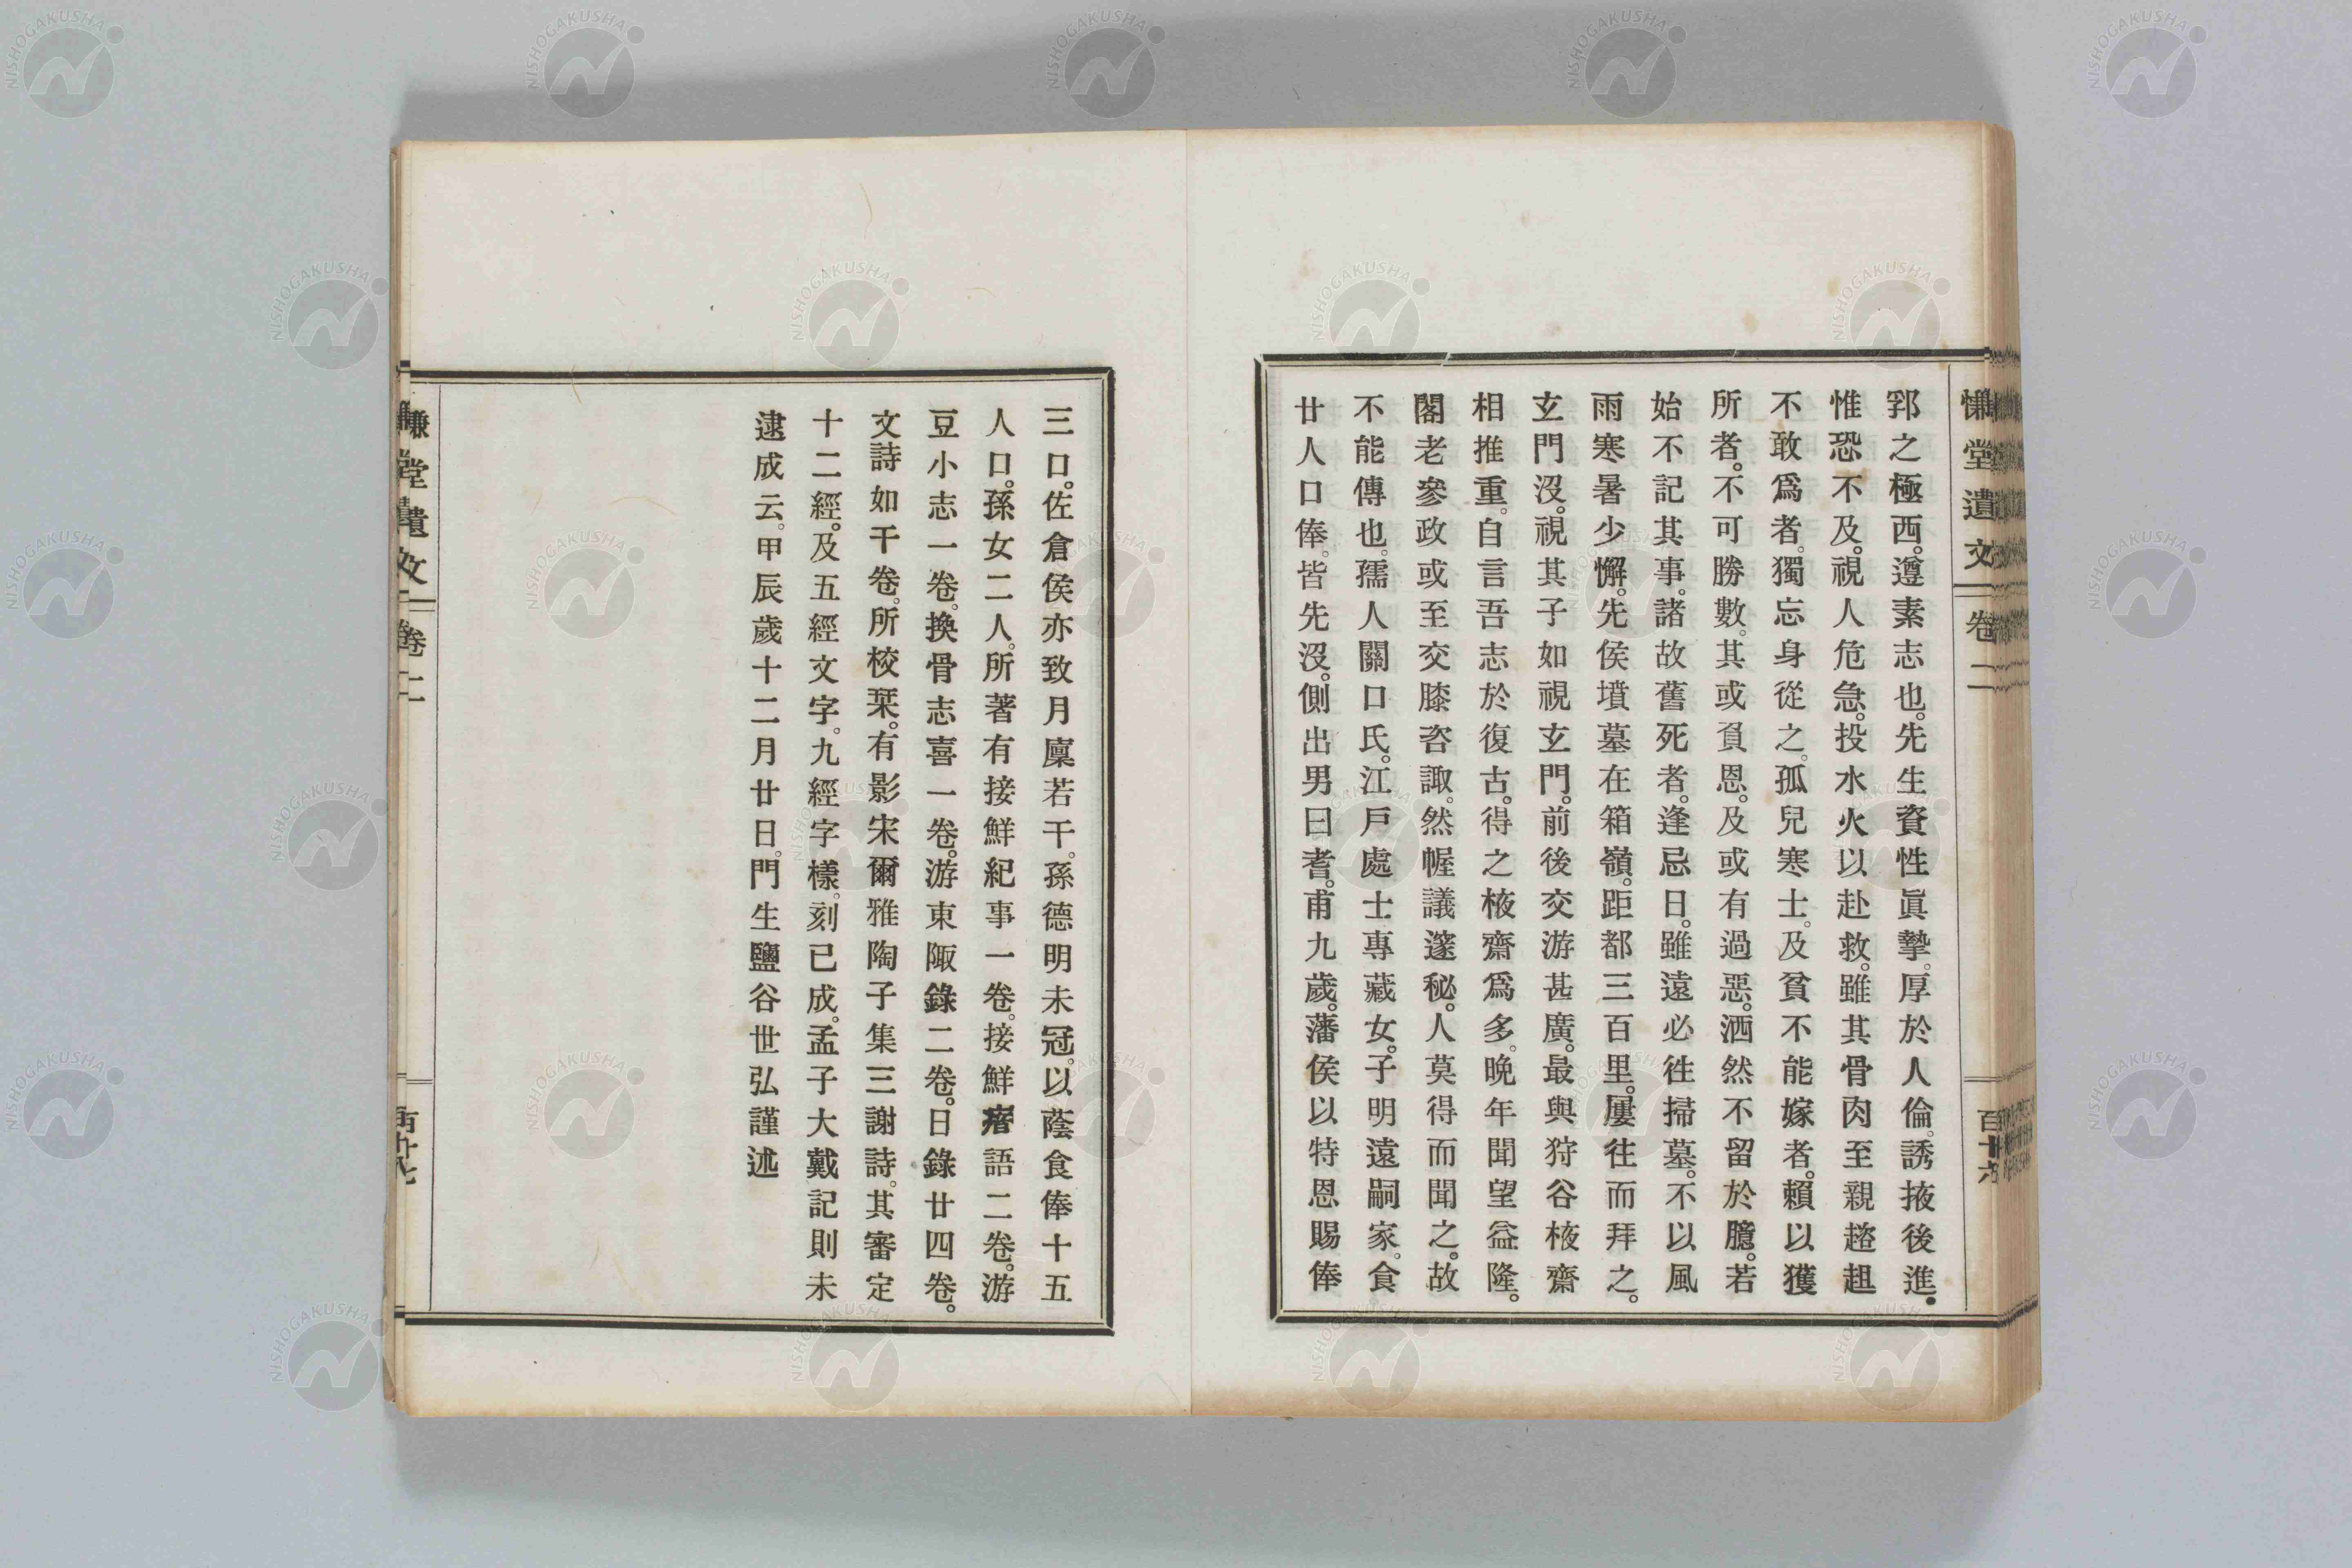 慊堂遺文 卷二 百十六
郛之極西。遵素志也。先生資性眞摯。厚於人倫。誘掖後進。
惟恐不及。視人危急。投水火以赴救。雖其骨肉至親趑趄
不敢爲者。獨忘身從之。孤兒寒士。及貧不能嫁者。賴以獲
所者。不可勝數。其或負恩。及或有過惡。洒然不留於臆。若
始不記其事。諸故舊死者。逢忌日。雖遠必往掃墓。不以風
雨寒暑少懈。先侯墳墓在箱嶺。距都三百里。屢往而拜之。
玄門沒。視其子如視玄門。前後交游甚廣。最與狩谷棭齋
相推重。自言吾志於復古。得之棭齋爲多。晚年聞望益隆。
閣老參政或至交膝咨諏。然幄議邃秘。人莫得而聞之。故
不能傳也。孺人關口氏。江戶處士專藏女。子明遠嗣家。食
廿人口俸。皆先沒。側出男曰耆。甫九歲。藩侯以特恩賜俸
三口。佐倉侯亦致月廩若干。孫德明未冠。以蔭食俸十五
人口。孫女二人。所著有接鮮紀事一卷。接鮮瘖語二卷。游
豆小志一卷。換骨志喜一卷。游東陬錄二卷。日錄廿四卷。
文詩如干卷。所校栞。有影宋爾雅陶子集三謝詩。其審定
十二經。及五經文字。九經字樣。刻已成。孟子大戴記則未
逮成云。甲辰歲十二月廿日。門生鹽谷世弘謹述
慊堂遺文 卷二
NISHOGAKUSHA